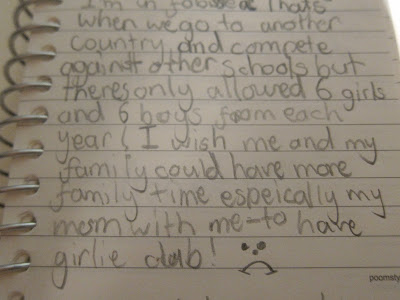 I'm in fobisea thats
when we go to another
country, and compete
against other schools but
theres only allowed 6 girls
and 6 boys from each
year! I wish me and my
family could have more
family time espeically my
mom with me-to have
girlie club!
poomsty